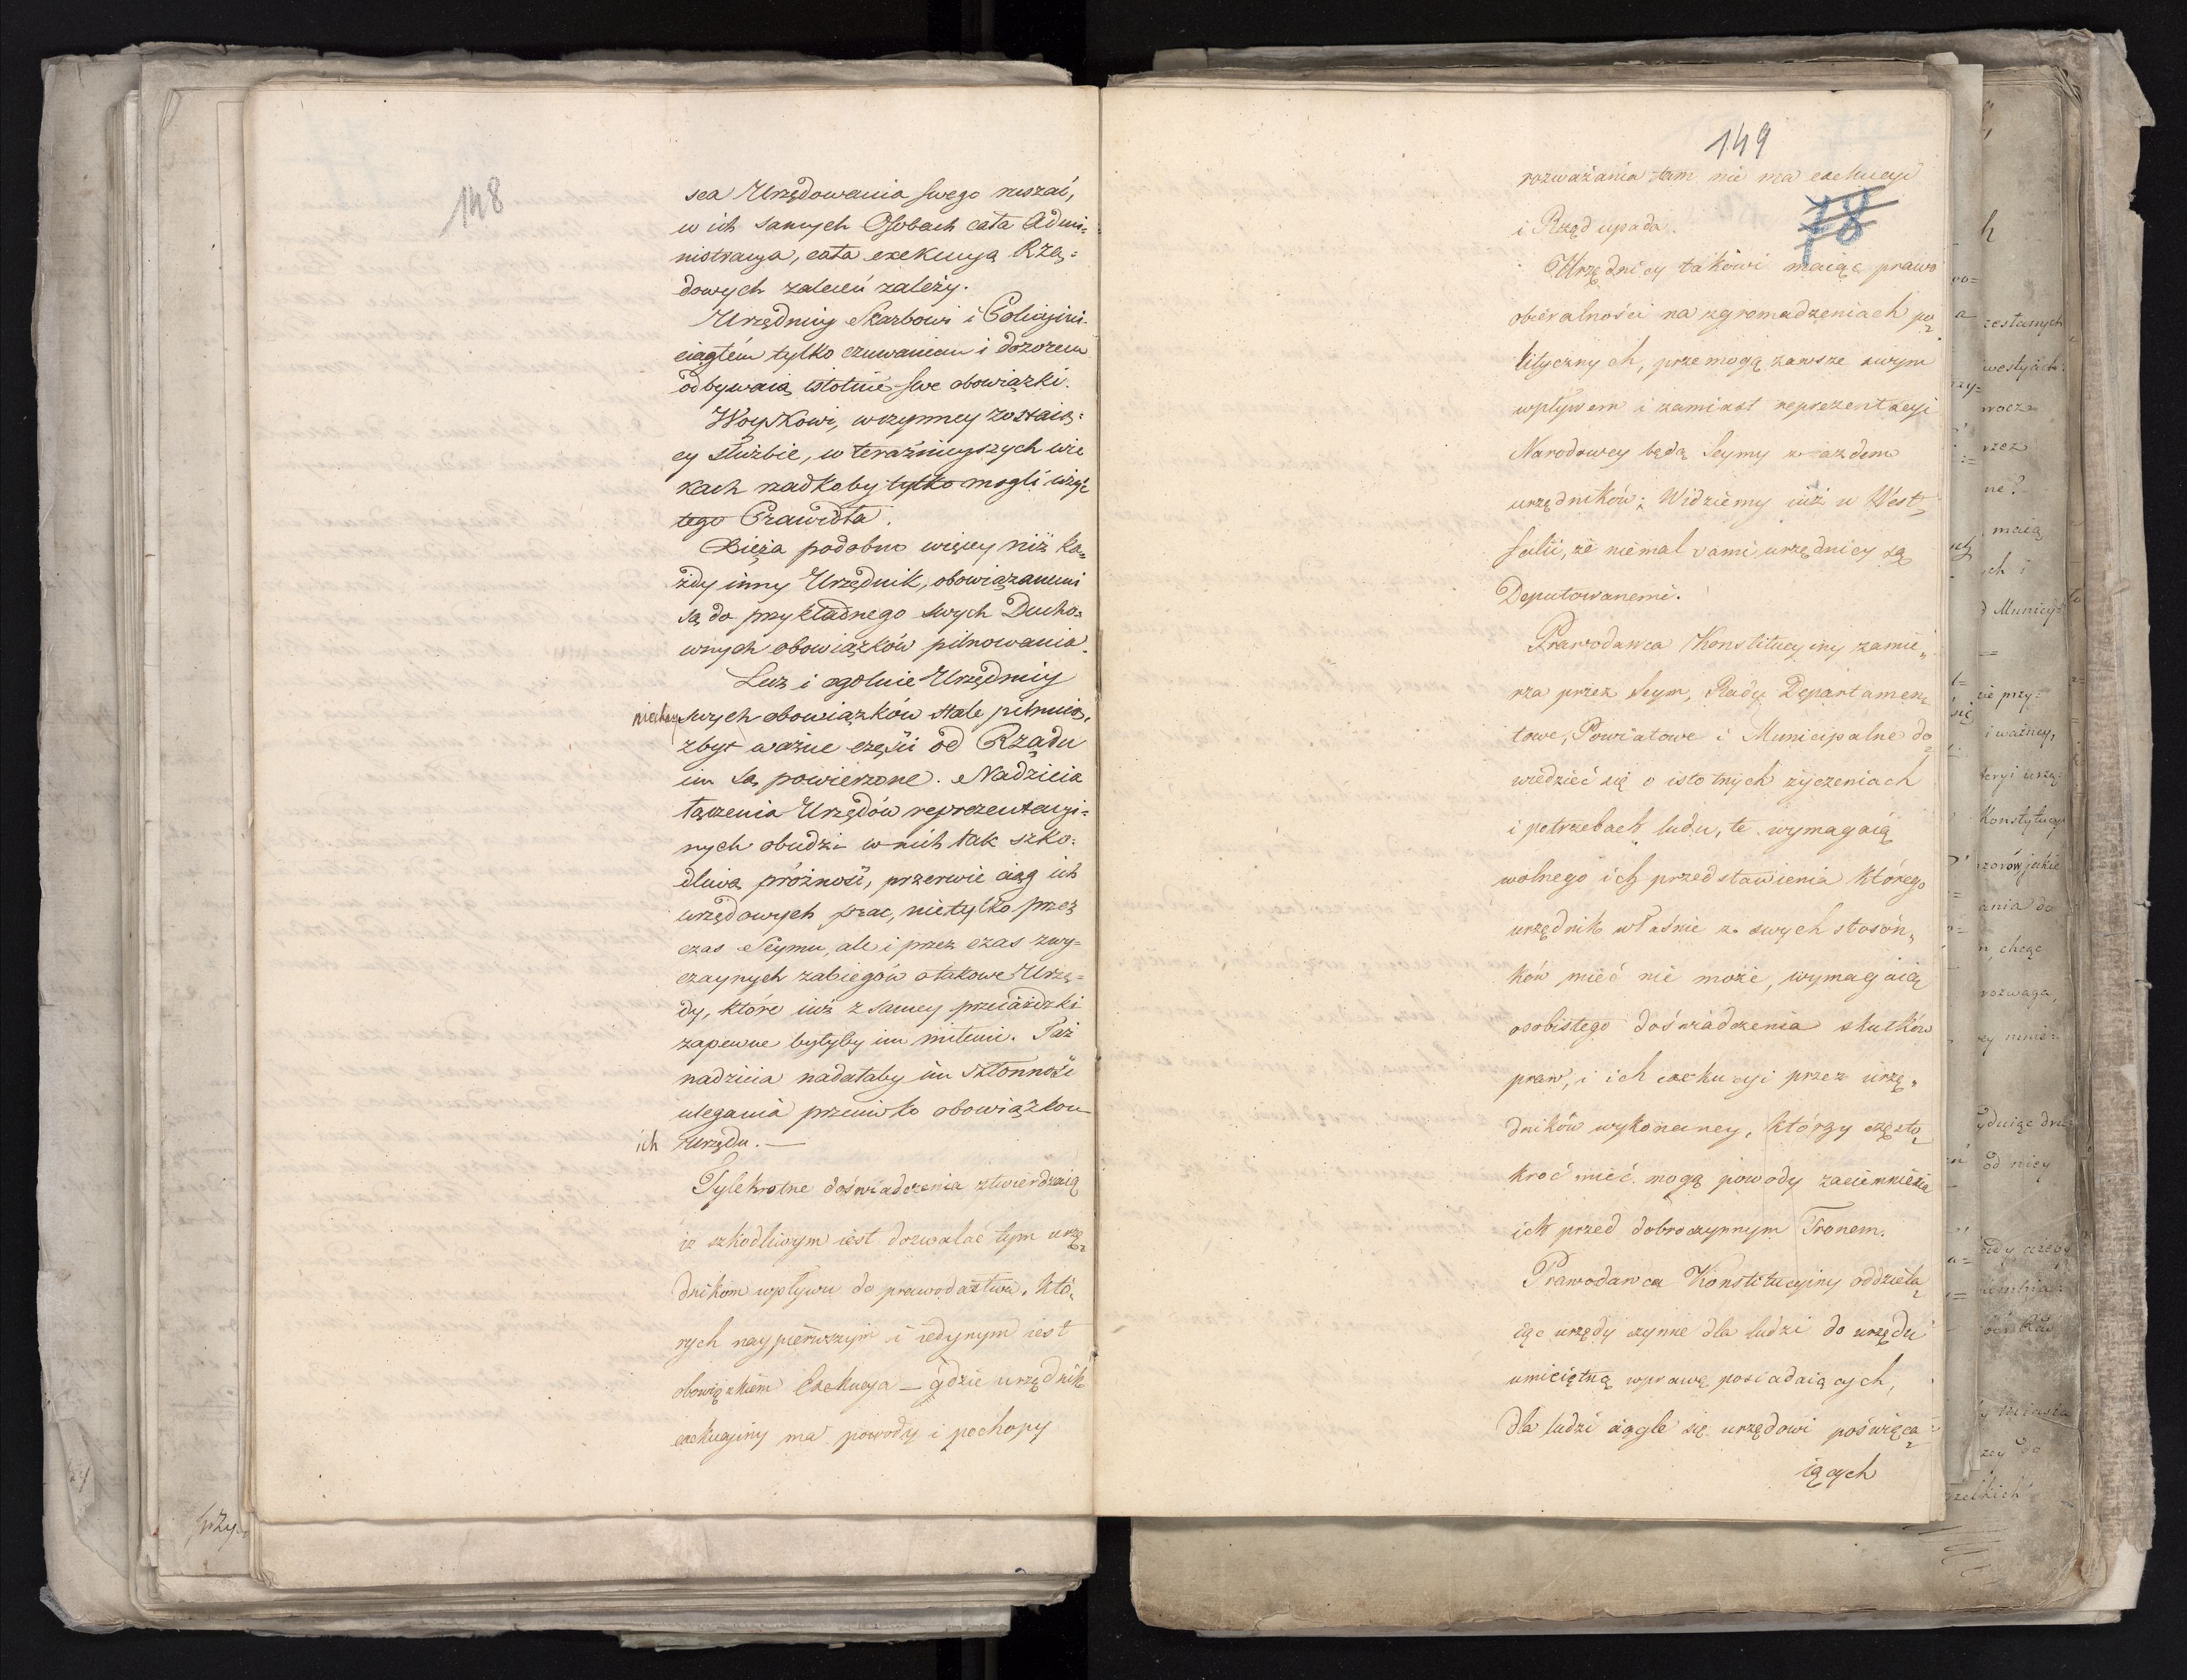 148
sca Urzędowania swego ruszać,
w ich samych Osobach cała Admi=
nistracya, cała exekucya Rzą=
dowych zaleceń zależy.
Urzędnicy Skarbowi i Policyini
ciągłém tylko czuwaniem i dozorem
odbywaią istotnie swe obowiązki.
Woyskowi, w czynney zostaią=
cy służbie, w teraźnieyszych wie
kach rzadkoby tylko mogli użyć
tego Prawidła.
Xięża podobno więcey niż ka=
żdy inny Urzędnik, obowiązanemi
są do przykładnego swych Ducho=
wnych obowiązków pilnowania.
Lecz i ogólnie Urzędnicy
niechay swych obowiązków stale pilnuią,
zbyt ważne części od Rządu
im są powierzone. Nadzieia
łączenia Urzędów reprezentacyi=
nych obudzi w nich tak szko=
dliwą próżność, przerwie ciąg ich
urzędowych prac, nietylko przez
czas Seymu, ale i przez czas zwy=
czaynych zabiegów o takowe Urzę=
dy, które iuż z samey przeiażdżki
zapewne byłyby im miłemi. Taż
nadzieia nadałaby im skłonność
ulegania przeciwko obowiązkom
ich Urzędu. —
Tylekrotne doświadczenia ztwierdzaią
iż szkodliwym iest dozwalać tym urzę=
dnikom wpływu do prawodaztwa, któ=
rych naypierwszym i iedynym iest
obowiązkiem Exekucya — gdzie urzędnik
exekucyiny ma powody i pochopy
149
rozważania tam nie ma exekucyi
78
i Rząd upada.
Urzędnicy takowi maiąc prawo
obieralności na zgromadzeniach po=
litycznych, przemogą zawsze swym
wpływem i zamiast reprezentacyi
Narodowey będą Seymy ziazdem
urzędników; Widziemy iuż w West=
falii, że niemal sami urzędnicy są
Deputowanemi.
Prawodawca Konstitucyiny zamie„
rza przez Seym, Rady Departamen„
towe, Powiatowe i Municipalne do=
wiedzieć się o istotnych życzeniach
i potrzebach ludu, te wymagaią
wolnego ich przedstawienia którego
urzędnik właśnie z swych stosun„
ków mieć nie może, wymagaią
osobistego doświadczenia skutków
praw, i ich exekucyi przez urzę„
dników wykonaney, którzy często=
kroć mieć mogą powody zaciemnienia
ich przed dobroczynnym Tronem.
Prawodawca Konstitucyiny oddziela=
iąc urzędy czynne dla ludzi do urzędu
umieiętną wprawę posiadaiących,
dla ludzi ciągle się urzędowi poświęca=
iących